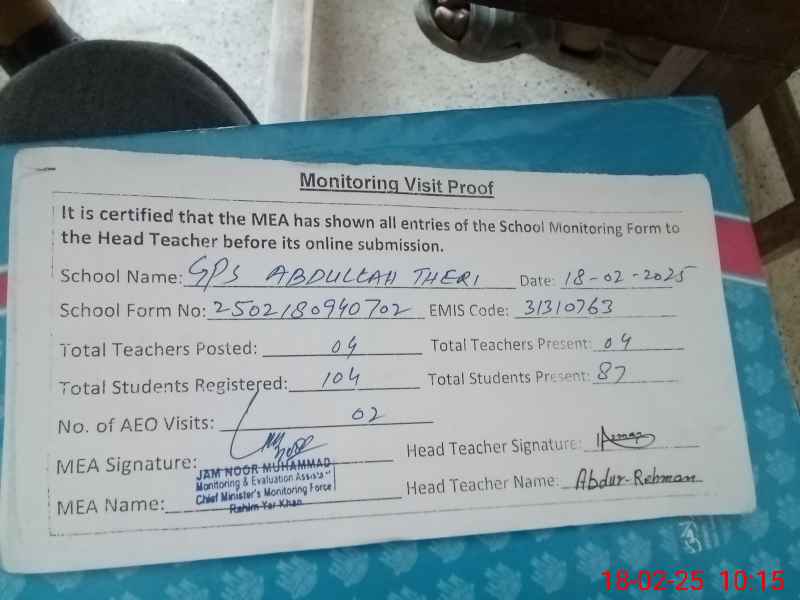 Monitoring Visit Proof
It is certified that the MEA has shown all entries of the School Monitoring Form to
the Head Teacher before its online submission.
School Name: GPS ABDULLAH THERI Date: 18-02-2025
School Form No: 2502180940702 EMIS Code: 31310763
Total Teachers Posted: 04 Total Teachers Present: 04
Total Students Registered: 104 Total Students Present: 87
No. of AEO Visits: 02
MEA Signature: Head Teacher Signature:
JAM NOOR MUHAMMAD
Monitoring & Evaluation Assista
Chief Minister's Monitoring Force
Rahim Yar Khan
MEA Name: Head Teacher Name: Abdur-Rehman
18-02-25 10:15